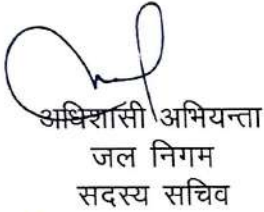 अधिशासी अभियन्ता
जल निगम
सदस्य सचिव